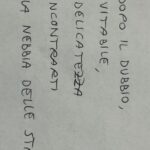 DOPO IL DUBBIO,
VITABILE,
DELICATEZZA
NCONTRARTI
LA NEBBIA DELLE ST